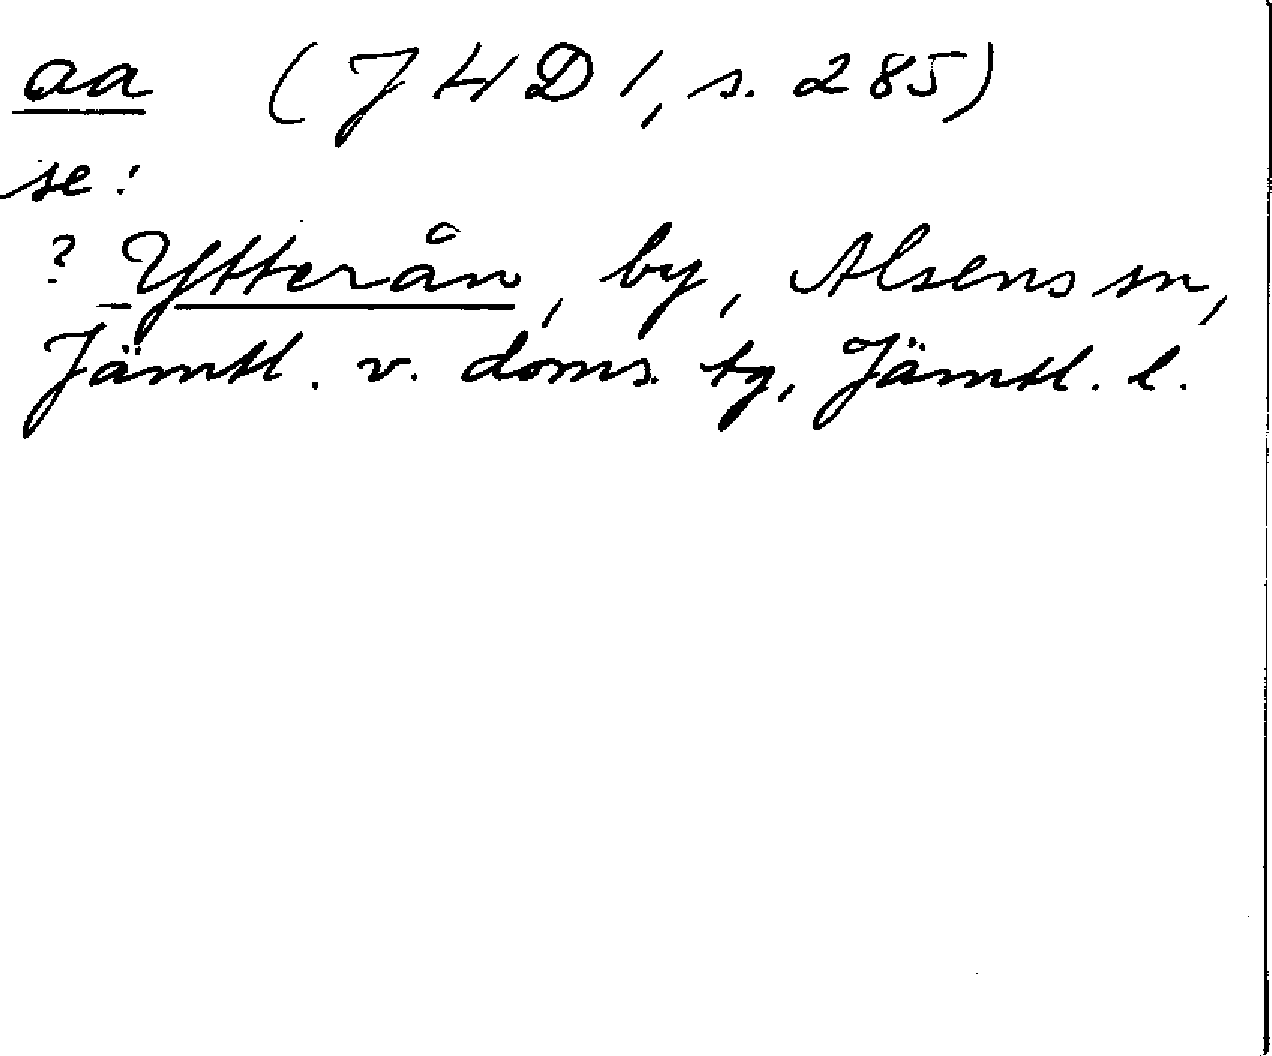 aa (JHD 1, s. 285)
se:
? Ytterån, by, Alsens sn,
Jämtl. v. doms. tg, Jämtl. l.